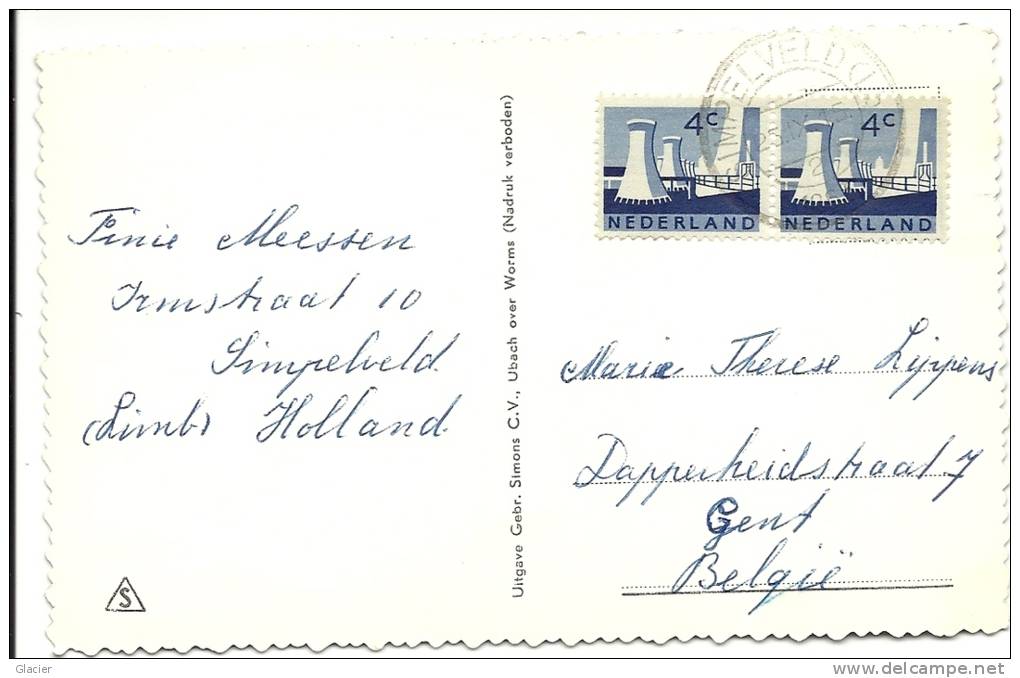 Finie Meessen
Irmstraat 10
Simpelveld
(Limb) Holland
S
Uitgave Gebr. Simons C.V., Ubach over Worms (Nadruk verboden)
SIMPELVELD
4c
NEDERLAND
4c
NEDERLAND
Maria Therese Lippens
Dapperheidstraat 7
Gent
België
Glacier
www.delcampe.net